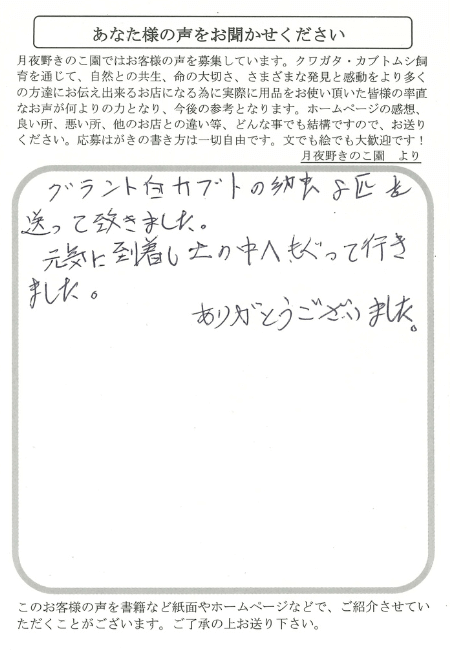 あなた様の声をお聞かせください
月夜野きのこ園ではお客様の声を募集しています。クワガタ・カブトムシ飼
育を通じて、自然との共生、命の大切さ、さまざまな発見と感動をより多く
の方達にお伝え出来るお店になる為に実際に用品をお使い頂いた皆様の率直
なお声が何よりの力となり、今後の参考となります。ホームページの感想、
良い所、悪い所、他のお店との違い等、どんな事でも結構ですので、お送り
ください。応募はがきの書き方は一切自由です。文でも絵でも大歓迎です！
月夜野きのこ園　より
グラント白カブトの幼虫 匹を
送って致きました。
元気に到着し土の中へもぐって行き
ました。
ありがとうございました。
このお客様の声を書籍など紙面やホームページなどで、ご紹介させてい
ただくことがございます。ご了承の上お送り下さい。